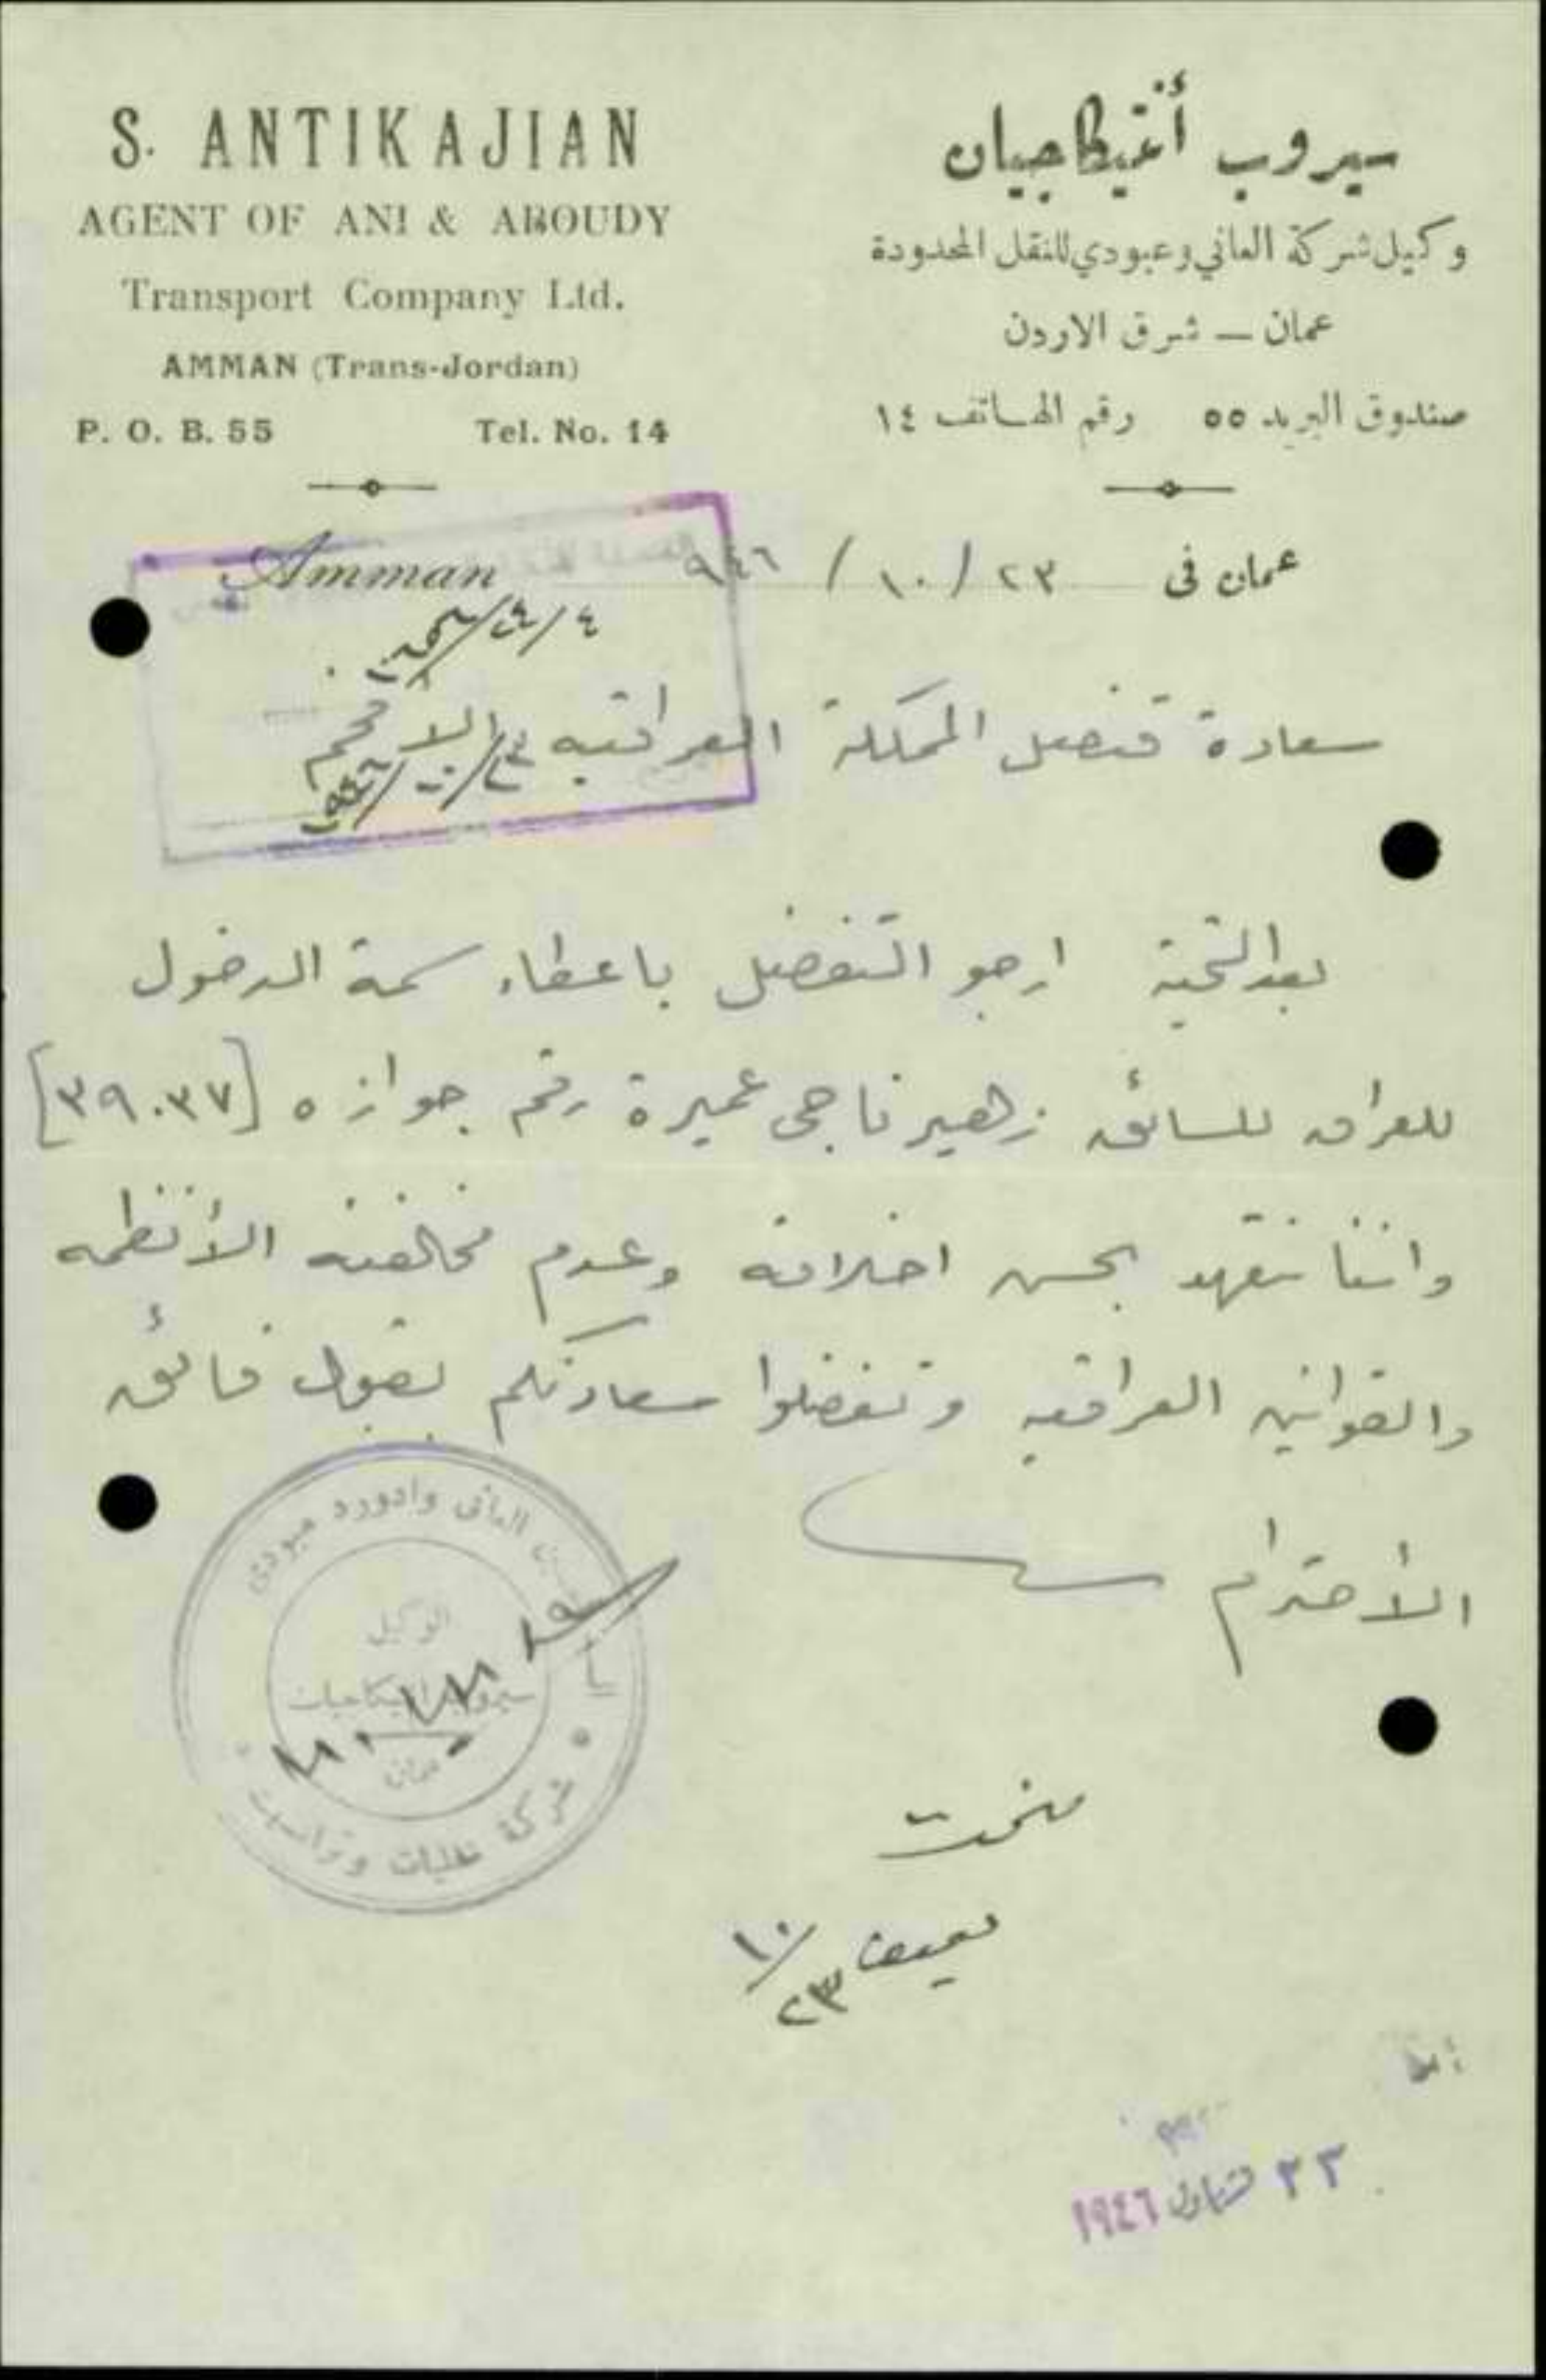 S. ANTIKAJIAN
AGENT OF ANI & ABOUDY
Transport Company Ltd.
AMMAN (Trans-Jordan)
P. O. B. 55 Tel. No. 14
سيروب أنتيكاجيان
وكيل شركة العاني وعبودي للنقل المحدودة
عمان — شرق الاردن
صندوق البريد ٥٥ رقم الهاتف ١٤
Amman
عمان فى ٢٣ / ١٠ / ٩٤٦
سعادة قنصل المملكة العراقيه الافخم
٢٣/١٠/١٩٤٦
بعد التحية ارجو التفضل باعطاء سمة الدخول
للعراق للسائق زهير ناجي عميرة رقم جوازه [٣٩٠٣٧]
واننا نتعهد بحسن اخلاقه وعدم مخالفته الأنظمه
والقوانين العراقيه وتفضلوا سعادتكم بقبول فائق
الأحترام
العاني وادورد عبودي
الوكيل
سيروب انتيكاجيان
عمان
شركة نقليات
منحت
١٠/٢٣
٢٣ تشرين ١٩٤٦